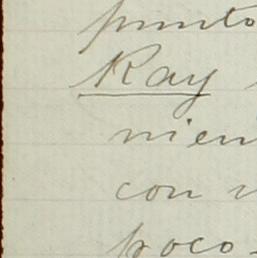 punto
Ray
nien
con
poco-